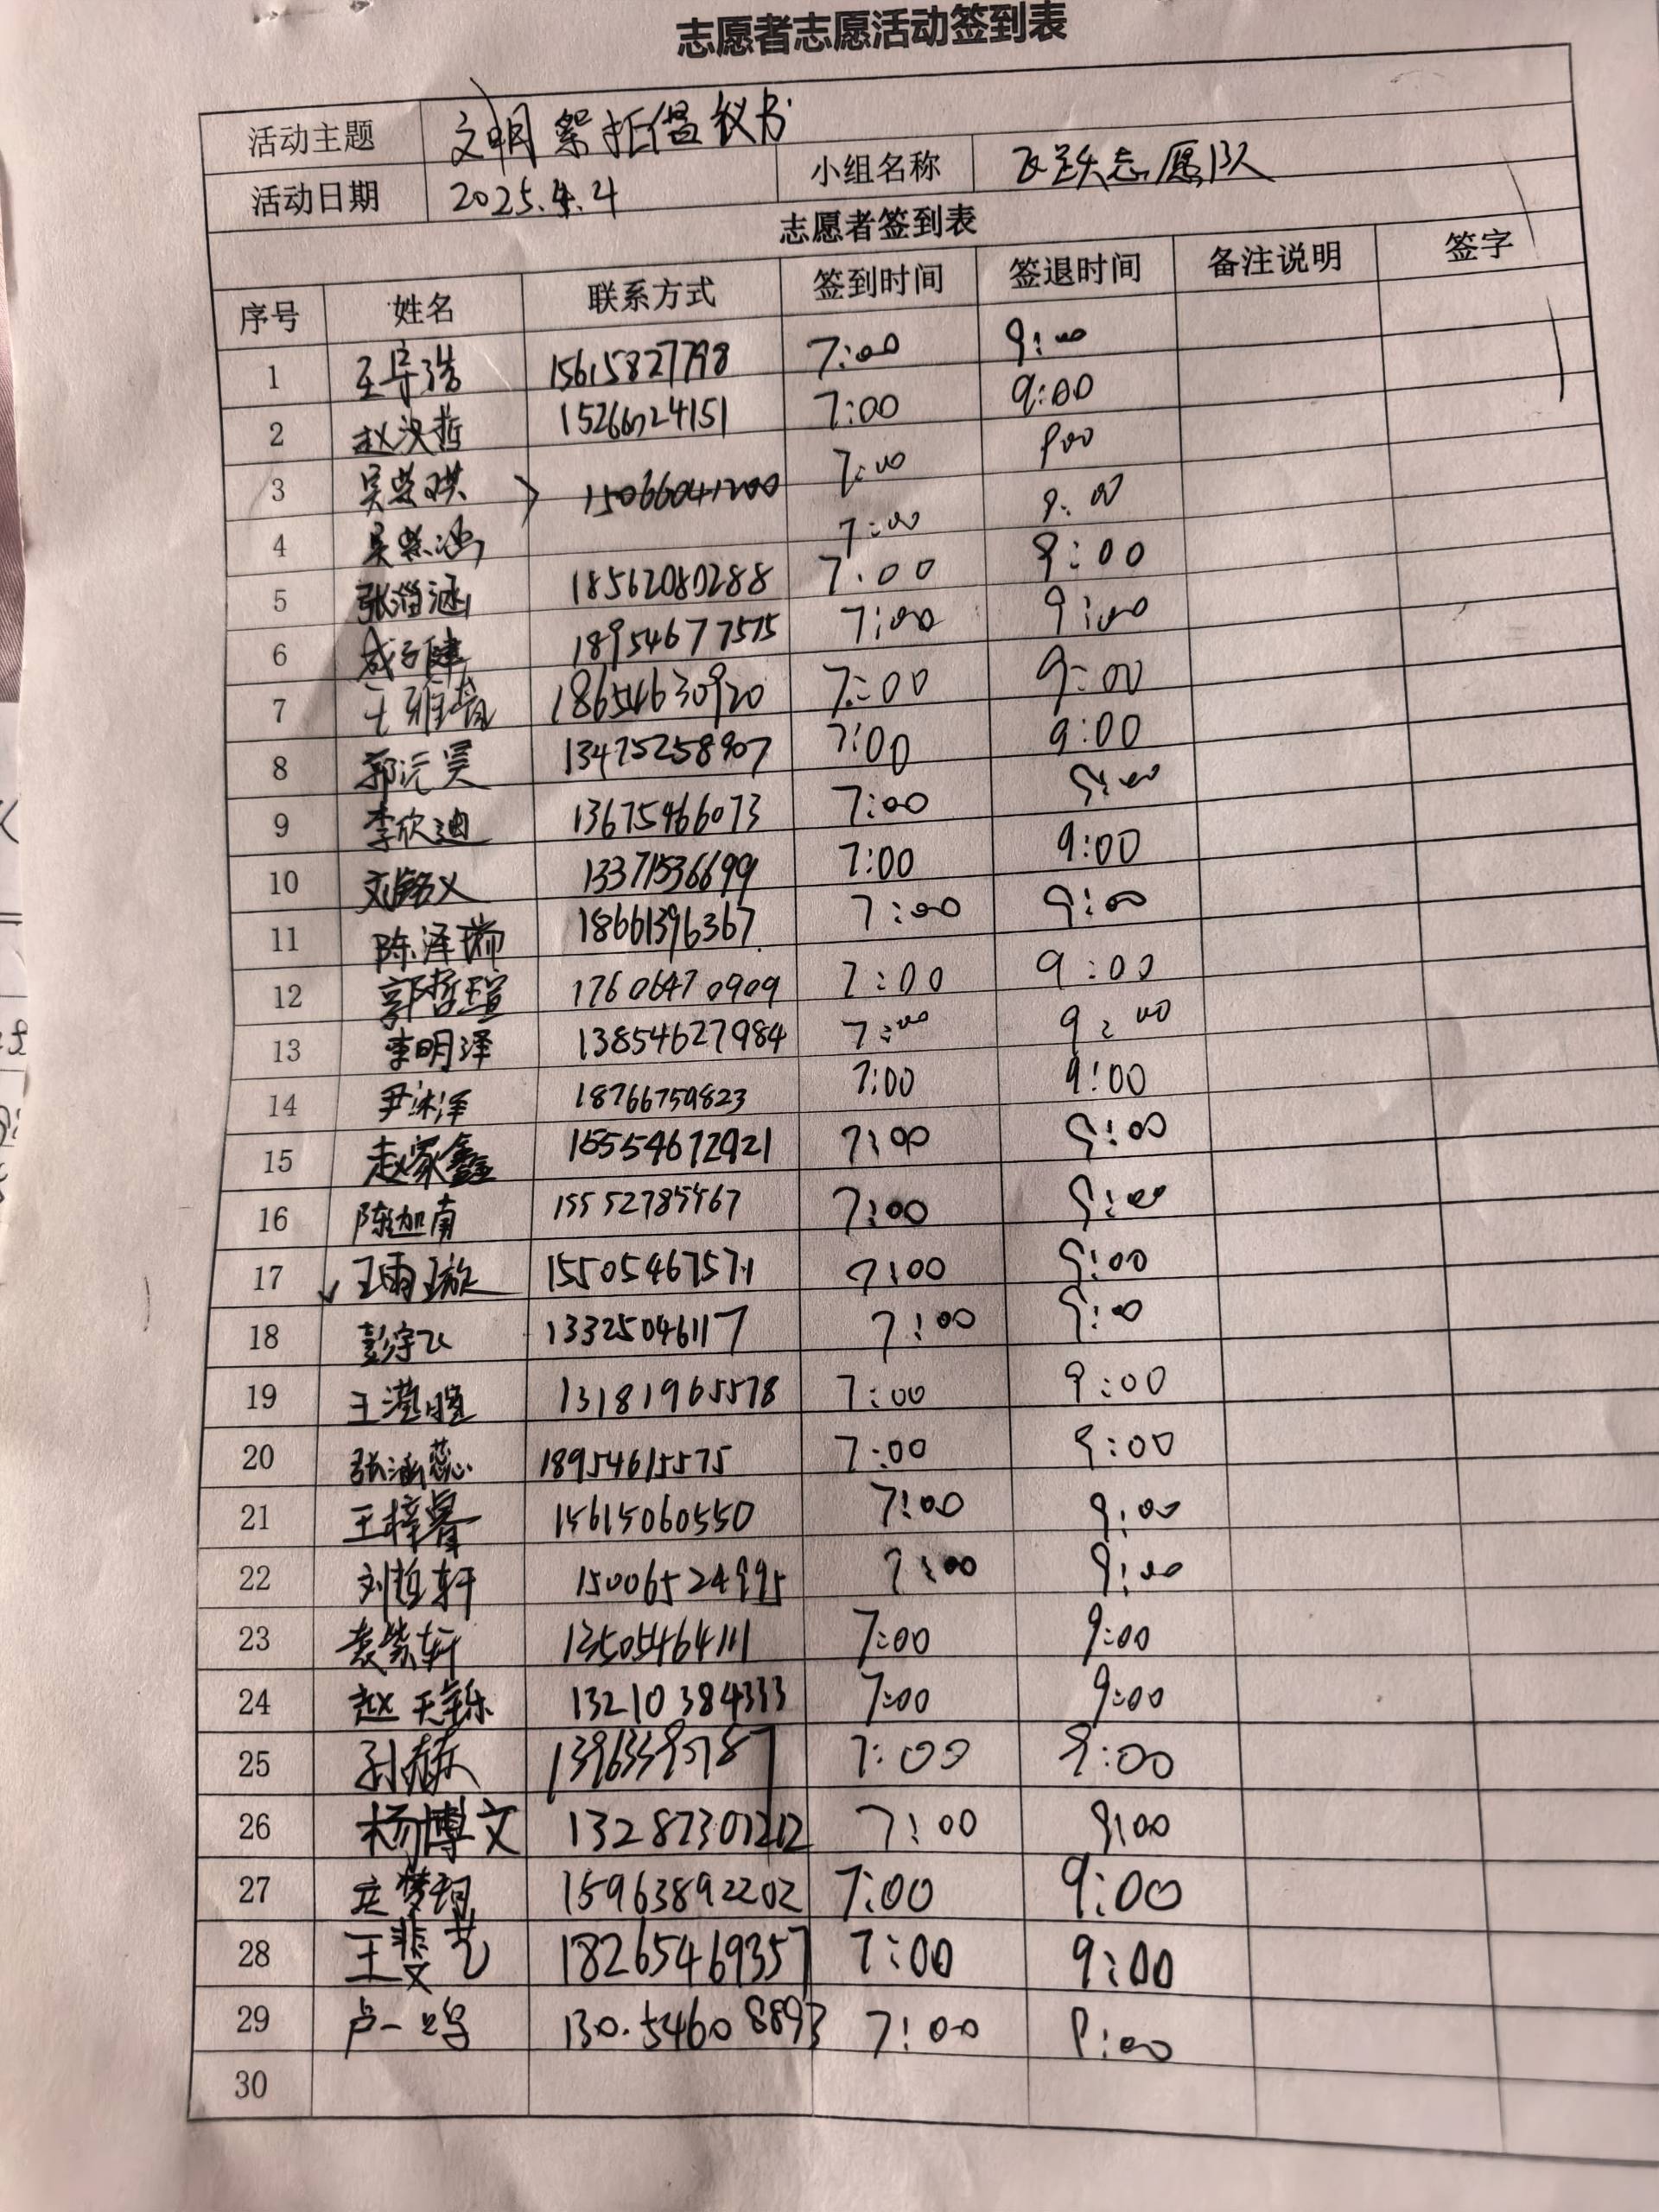 志愿者志愿活动签到表
活动主题 文明祭扫倡议书
活动日期 2025.4.4 小组名称 飞跃志愿队
志愿者签到表
序号 姓名 联系方式 签到时间 签退时间 备注说明 签字
1 浩 15615827798 7:00 9:00
2 赵 哲 7:00 9:00
3 吴 15066041200 7:00 9:00
4 吴 涵 7:00 9:00
5 张 涵 18562080288 7:00 9:00
6 成子健 18954677575 7:00 9:00
7 王雅 18654630920 7:00 9:00
8 郭沅昊 13475258907 7:00 9:00
9 李欣迪 13675466073 7:00 9:00
10 刘铭义 13371536699 7:00 9:00
11 陈泽瑞 18661396367 7:00 9:00
12 郭哲瑄 17606470909 7:00 9:00
13 李明泽 13854627984 7:00 9:00
14 尹沐泽 18766759823 7:00 9:00
15 赵家鑫 15554672921 7:00 9:00
16 陈迦南 15552785467 7:00 9:00
17 王雨璇 15505467571 7:00 9:00
18 彭宇飞 13325046117 7:00 9:00
19 王 13181965578 7:00 9:00
20 张涵蕊 18954615575 7:00 9:00
21 王梓馨 15615060550 7:00 9:00
22 刘哲轩 15006524995 7:00 9:00
23 袁紫轩 13505464111 7:00 9:00
24 赵天铄 13210384333 7:00 9:00
25 孙 7:00 9:00
26 杨博文 13287307212 7:00 9:00
27 庄梦珂 15963892202 7:00 9:00
28 王斐艺 18265469357 7:00 9:00
29 卢一鸣 130.54608893 7:00 9:00
30